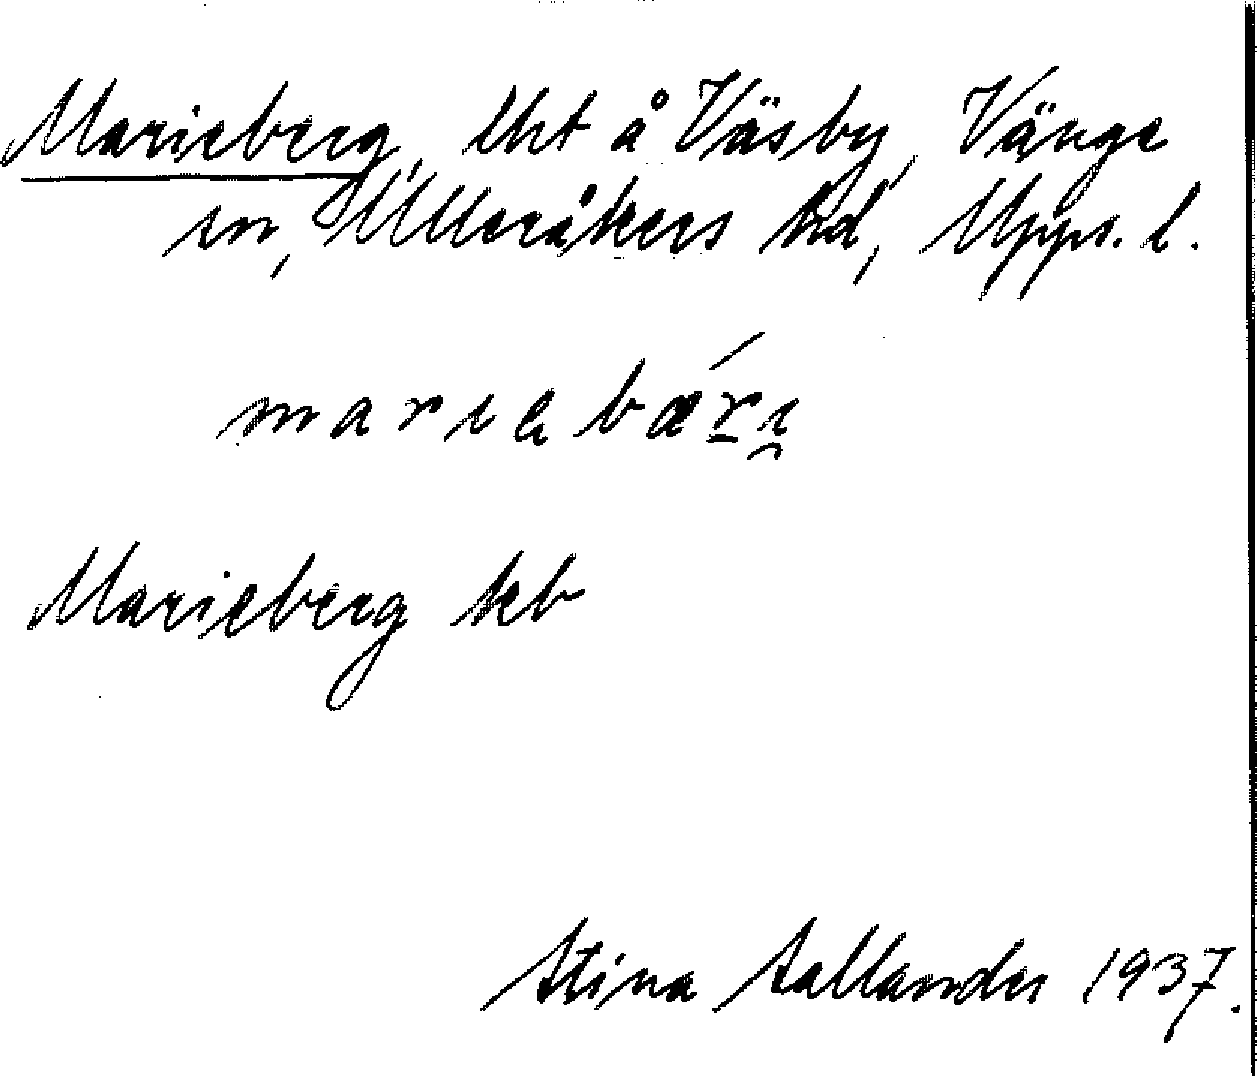 Marieberg, lht å Väsby, Vänge
sn, Ulleråkers hd, Upps. l.
Marieberg kb
Stina Sallander 1937.